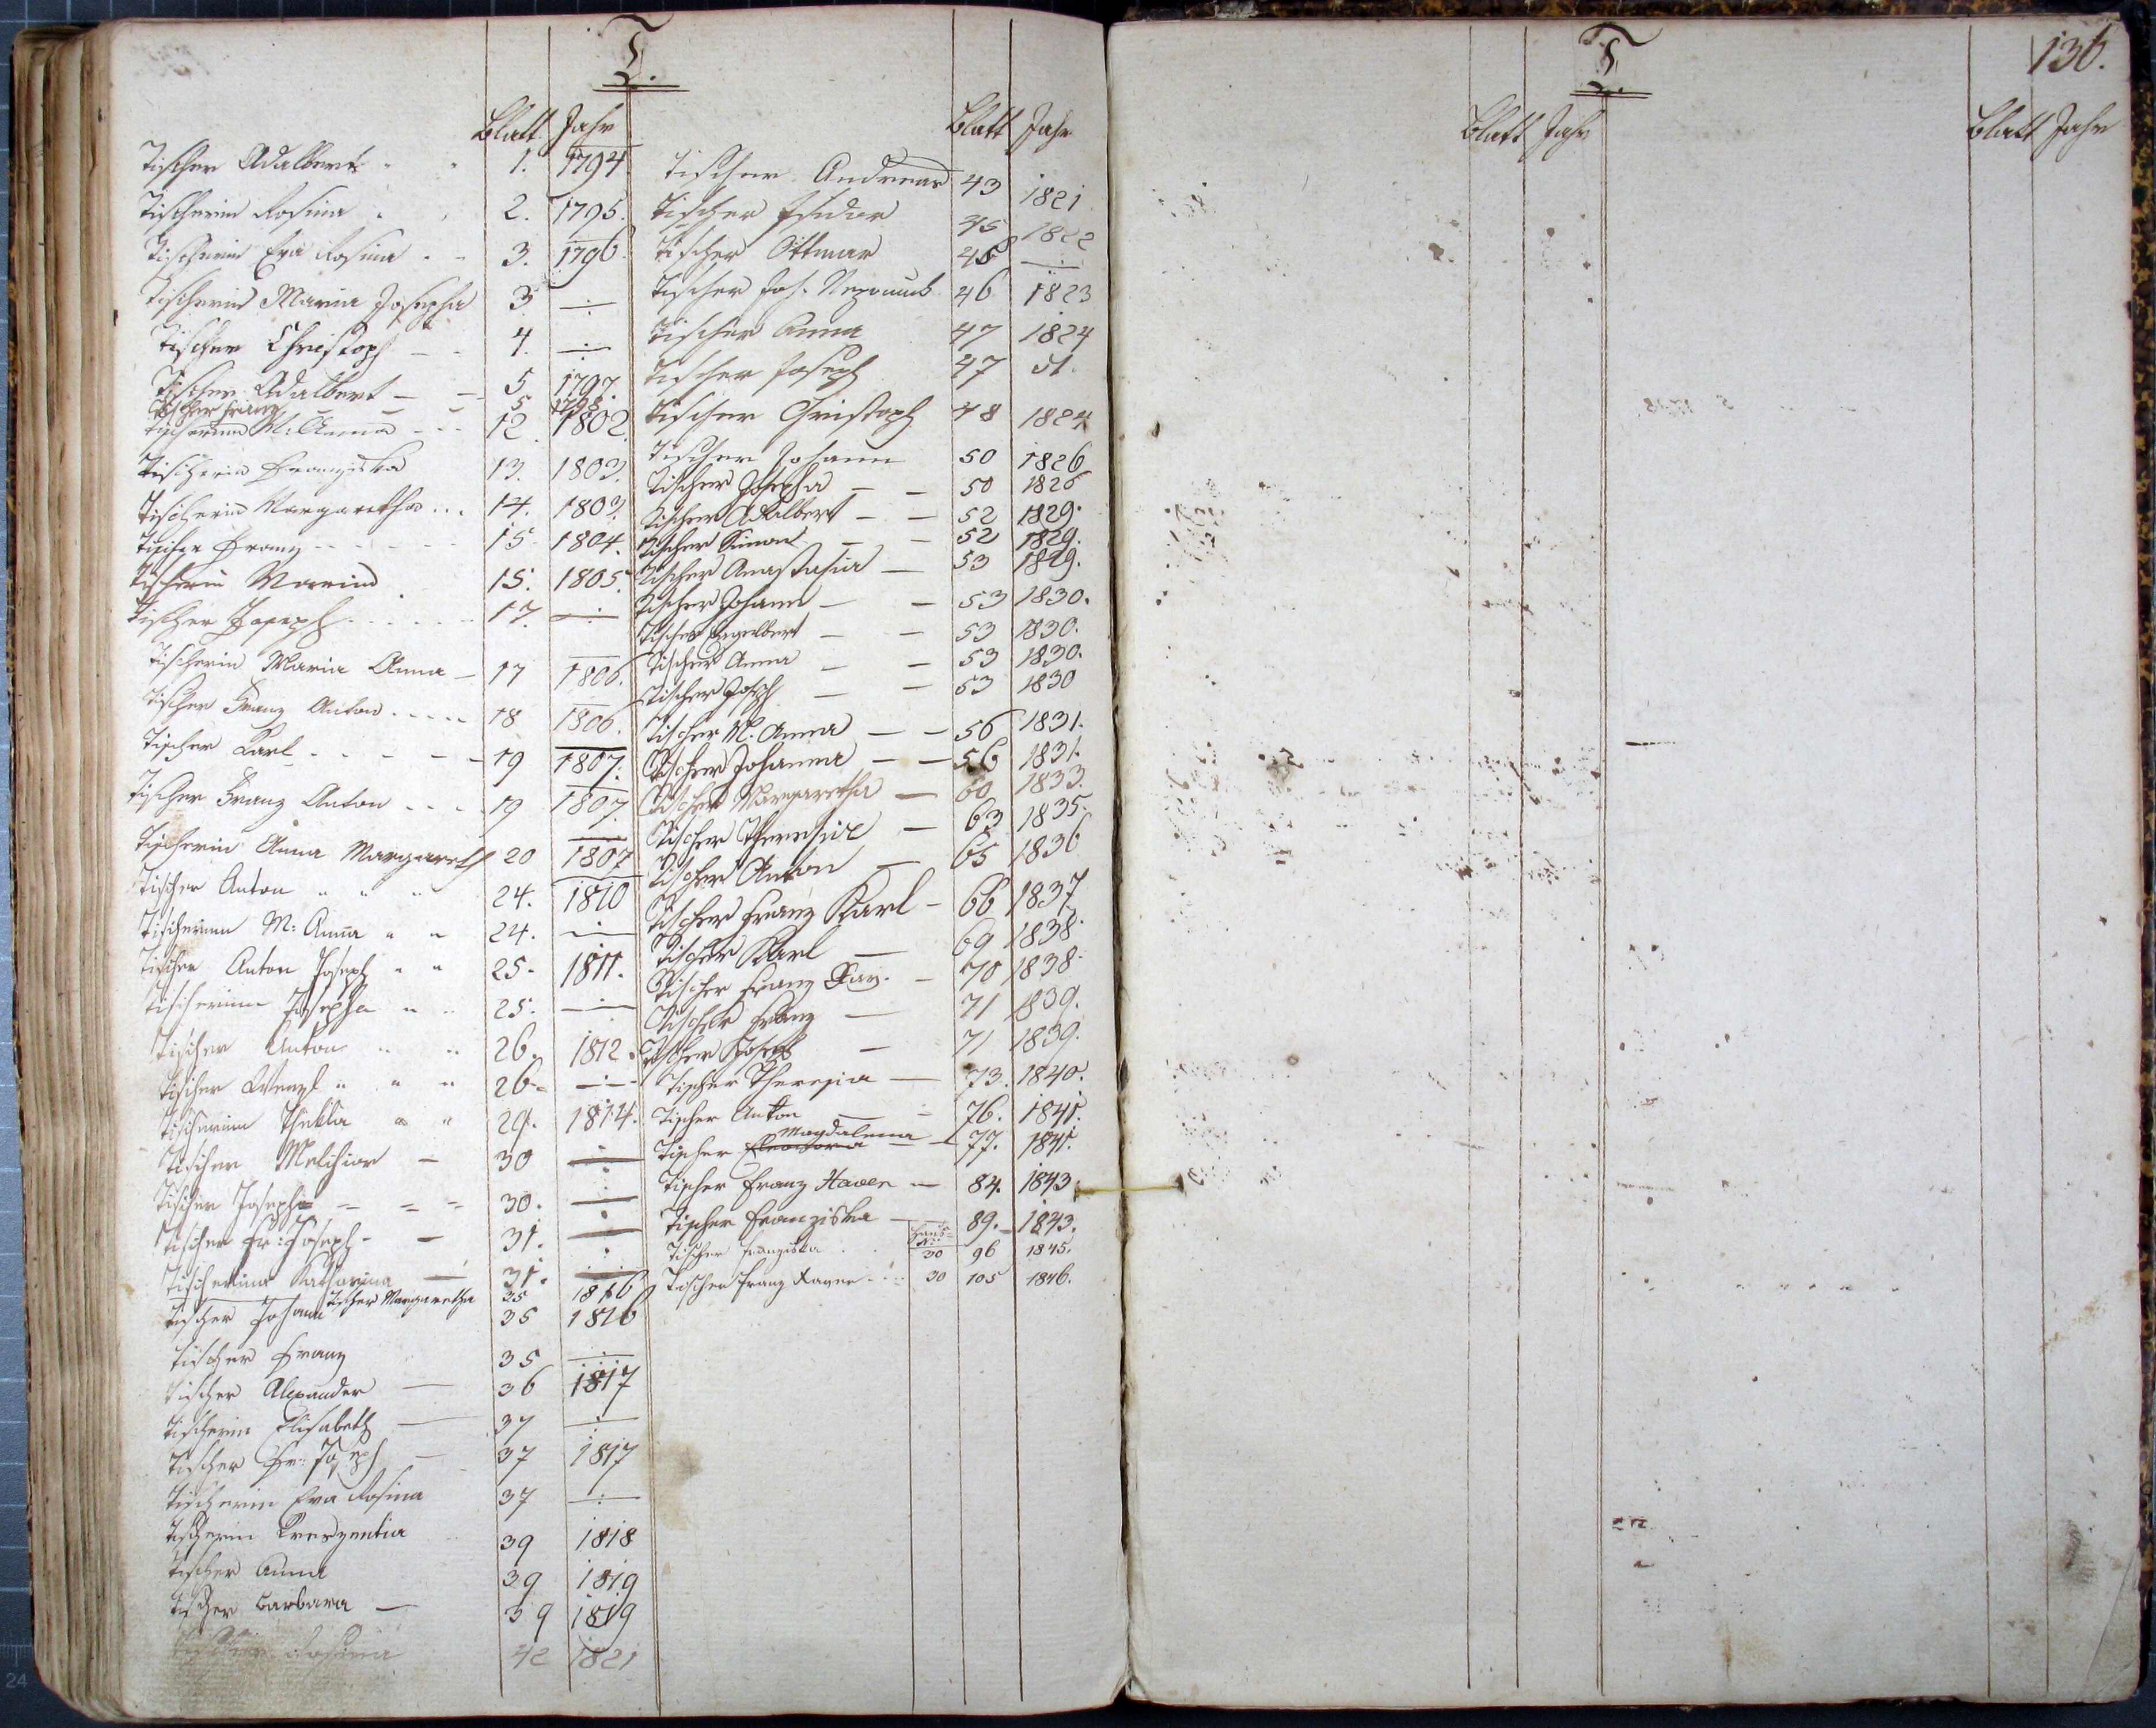 T.
Blatt Jahr
Tischer Adalbert 1. 1794
Tischerin Rosina 2. 1795.
Tischerin Eva Rosina 3. 1796.
Tischerin Maria Josepha 3 -:-
Tischer Christoph 4. -:-
Tischer Adalbert 5 1797.
Tischer Franz 5 1798.
Tischerinn M: Anna 12 1802.
Tischerin Franziska 13. 1803.
Tischerin Margaretha 14. 1803.
Tischer Franz 15 1804.
Tischerin 15. 1805.
Tischer Joseph 17. -:-
Tischerin Maria Anna 17 1806.
Tischer Franz Anton 18 1806.
Tischer Karl 19 1807.
Tischer Franz Anton 19 1807.
Tischerin Anna Margareth 20 1807
Tischer Anton 24. 1810
Tischerinn M: Anna 24. -:-
Tischer Anton Joseph 25. 1811.
Tischerinn Josepha 25. -:-
Tischer Anton 26. 1812.
Tischer Wenzl 26. -:-
Tischerinn Thekla 29. 1814.
Tischer Melchior 30 -:-
Tischer Joseph 30. -:-
Tischer Fr: Joseph 31. -:-
Tischerinn Katharina 31. -:-
Tischer Margaretha 35 1816
Tischer Johann 35 1816
Tischer Franz 35 -:-
Tischer Alexander 36 1817
Tischerin Elisabeth 37 -:-
Tischer Fr: Joseph 37 1817
Tischerin Eva Rosina 37 -:-
Tischerin Kreszentia 39 1818
Tischer Anna 39 1819
Tischer Barbara 39 1819
Rosina 42 1821
Blatt Jahr
Tischer Andreas 43 1821
Tischer Isidor 45 1822
Tischer Ottmar 45 -:-
Tischer Joh. Nepomuk 46 1823
Tischer Anna 47 1824
Tischer Joseph 47
Tischer Christoph 48 1824
Tischer Johann 50 1826
Tischer Josepha 50 1826
Tischer Adalbert 52 1829.
Tischer Simon 52 1829.
Tischer Anastasia 53 1829.
Tischer Johann 53 1830.
Tischer Engelbert 53 1830.
Tischer Anna 53 1830.
Tischer Joseph 53 1830
Tischer M. Anna 56 1831.
Tischer Johanna 56 1831.
Tischer Margaretha 60 1833.
Tischer Theresia 63 1835.
Tischer Anton 65 1836
Tischer Franz Karl 66 1837
Tischer Karl 69 1838.
Tischer Franz Xav. 70 1838.
Tischer Franz 71 1839.
Tischer Joseph 71 1839.
Tischer Theresia 73. 1840.
Tischer Anton 76. 1841.
Magdalena
Tischer Eleonora 77. 1841.
Tischer Franz Xaver 84. 1843.
Tischer Franziska 89. 1843.
Haus-
Nr.
Tischer Franziska 30 96 1845.
Tischer Franz Xaver 30 105 1846.
T.
136.
Blatt Jahr
Blatt Jahr